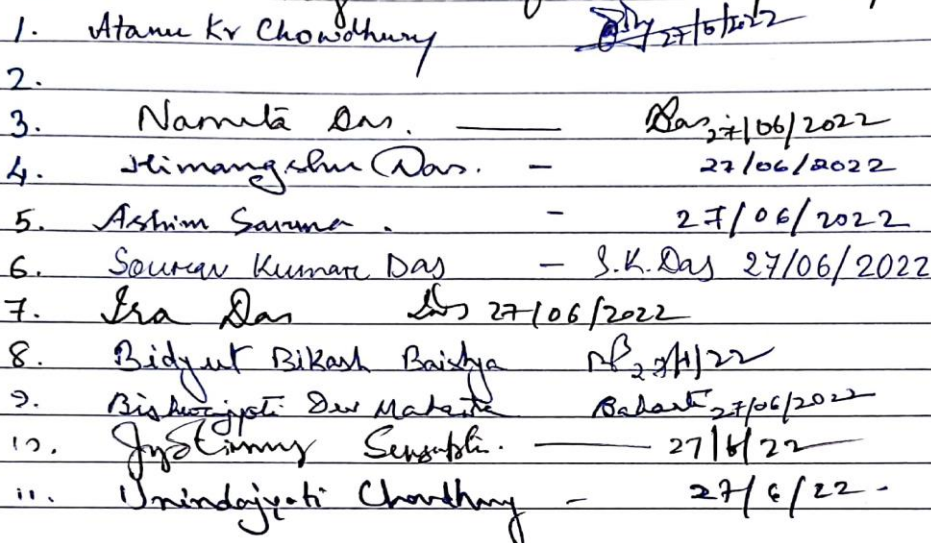 1. Atanu Kr Chowdhury 27/6/2022
2.
3. Namita Das. — Das 27/06/2022
4. Himangshu Das. - 27/06/2022
5. Ashim Sarma. - 27/06/2022
6. Sourav Kumar Das - S.K. Das 27/06/2022
7. Ira Das Das 27/06/2022
8. Bidyut Bikash Baishya
9. Bishwajyoti Dev Mahanta 27/06/2022
10. — 27/6/22
11. Unindajyoti Chowdhury - 27/6/22-